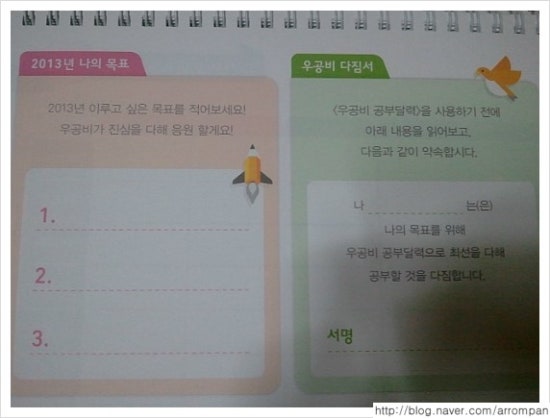 2013년 나의 목표
2013년 이루고 싶은 목표를 적어보세요!
우공비가 진심을 다해 응원 할게요!
1.
2.
3.
우공비 다짐서
〈우공비 공부달력〉을 사용하기 전에
아래 내용을 읽어보고,
다음과 같이 약속합시다.
나 는(은)
나의 목표를 위해
우공비 공부달력으로 최선을 다해
공부할 것을 다짐합니다.
서명
http://blog.naver.com/arrompan